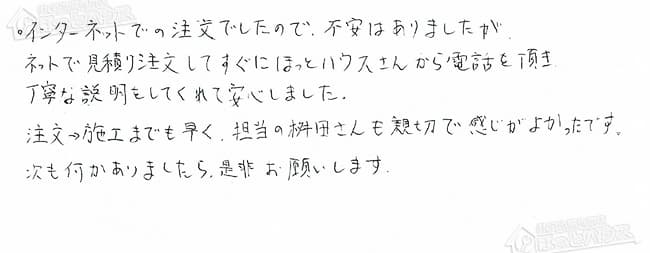 ○インターネットでの注文でしたので、不安はありましたが、
ネットで見積り注文してすぐにほっとハウスさんから電話を頂き
丁寧な説明をしてくれて安心しました。
注文→施工までも早く、担当の桝田さんも親切で感じがよかったです。
次も何かありましたら、是非お願いします。
ほっとハウス